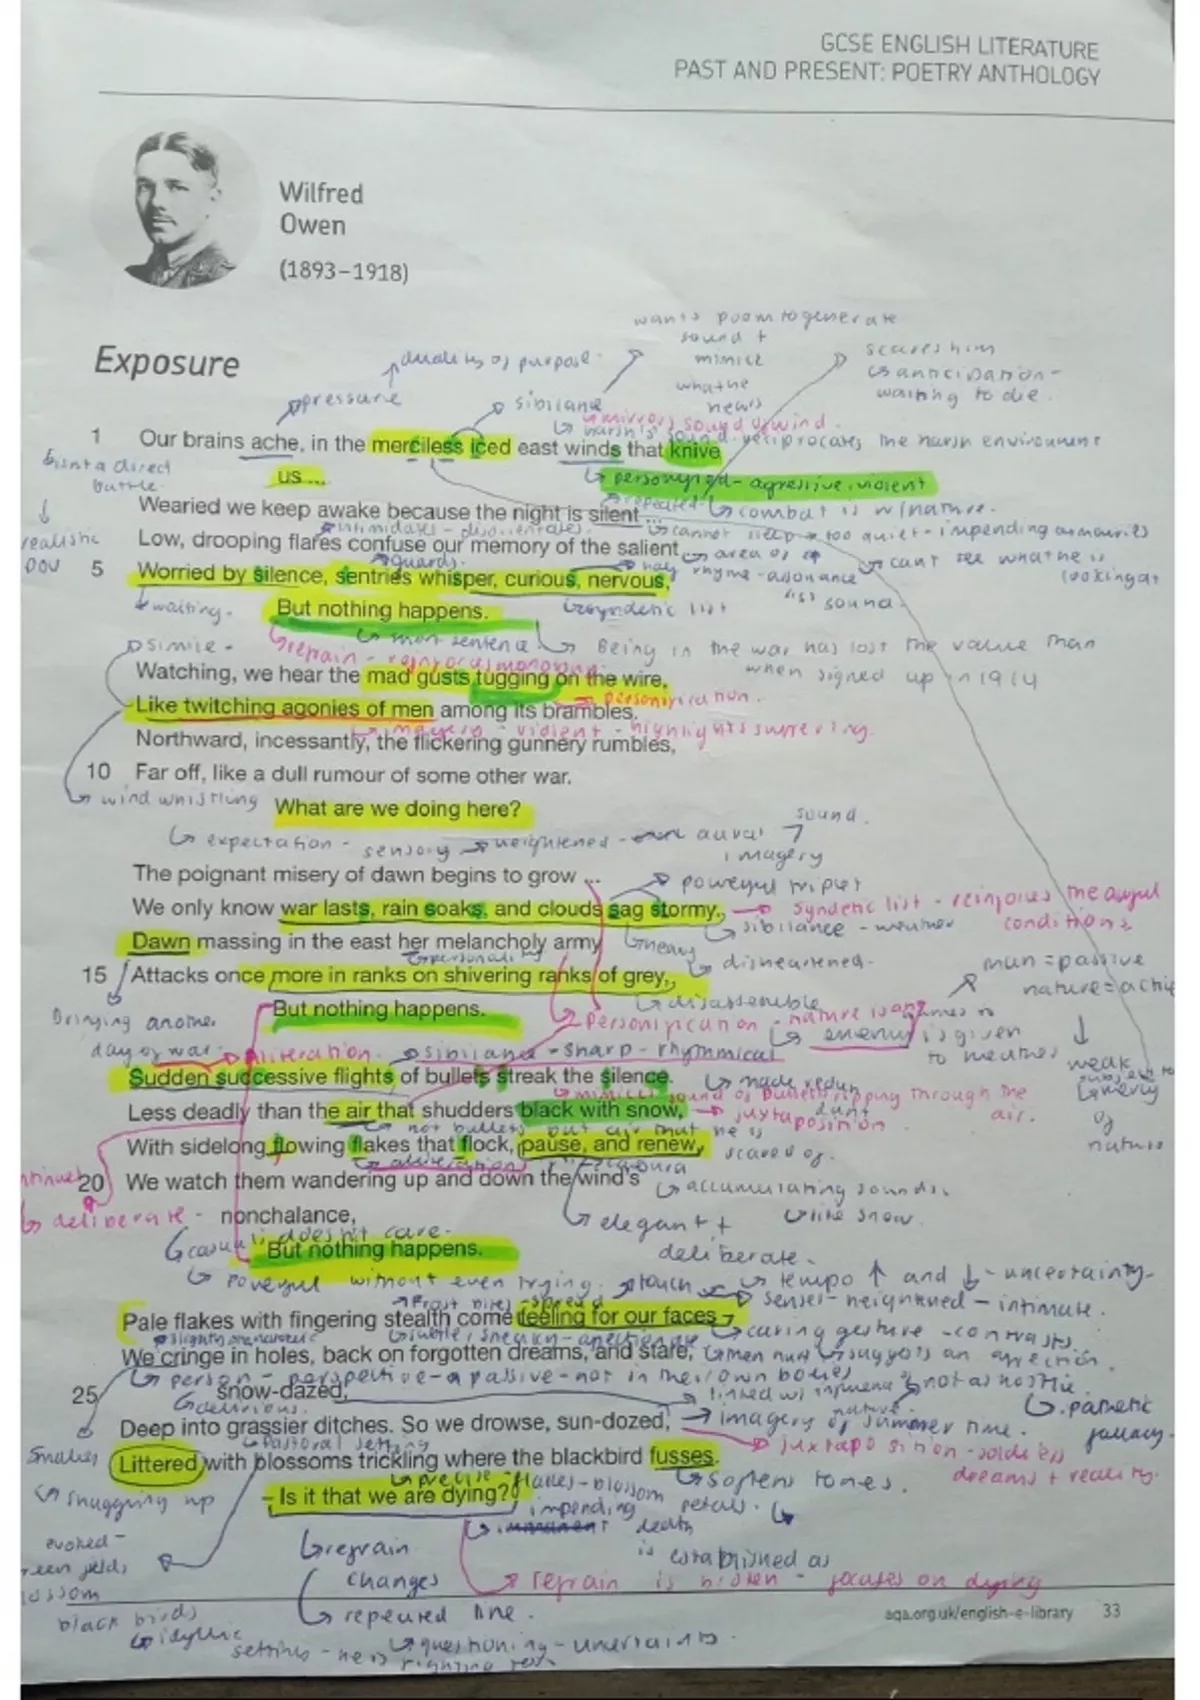 GCSE ENGLISH LITERATURE
PAST AND PRESENT: POETRY ANTHOLOGY
Wilfred
Owen
(1893–1918)
wants poem to generate
sound +
mimick
what he
hears
scares him
anticipation -
waiting to die.
Exposure
duality of purpose.
pressure
sibilance
mirrors sound of wind.
harsh 's' sound. reciprocates the harsh environment
1 Our brains ache, in the merciless iced east winds that knive
us ...
isnt a direct
battle.
personified - agressive, violent
repeated
combat is w/nature.
Wearied we keep awake because the night is silent ...
intimidates - disorientates.
cannot sleep → too quiet - impending armouries
realistic
POV
Low, drooping flares confuse our memory of the salient ...
area of
cant see what he is
looking at
guards.
rhyme - assonance
"s" sound.
5 Worried by silence, sentries whisper, curious, nervous,
waiting.
But nothing happens.
syndetic list
short sentence
Being in the war has lost the value than
when signed up in 1914
simile -
refrain - reinforces monotony.
Watching, we hear the mad gusts tugging on the wire,
personification.
Like twitching agonies of men among its brambles.
imagery - violent - highlights suffering.
Northward, incessantly, the flickering gunnery rumbles,
10 Far off, like a dull rumour of some other war.
wind whistling
What are we doing here?
expectation - sensory → heightened - aural
sound.
imagery
The poignant misery of dawn begins to grow ...
powerful triplet
We only know war lasts, rain soaks, and clouds sag stormy.
syndetic list - reinforces the awful
conditions
sibilance - weather
heavy
Dawn massing in the east her melancholy army
personality
disheartened.
15 Attacks once more in ranks on shivering ranks of grey,
man = passive
nature = active
disassemble
But nothing happens.
Bringing another
day of war.
personification - nature is an
enemy
is given
to weather
weak
mercy
of
nature
alliteration.
sibilance - sharp - rhythmical
Sudden successive flights of bullets streak the silence.
made redundant
mimics sound of bullets ripping through the
air.
Less deadly than the air that shudders black with snow,
juxtaposition
not bullets but air that he is
scared of.
With sidelong flowing flakes that flock, pause, and renew,
alliteration
20 We watch them wandering up and down the wind's
accumulating sounds.
like snow.
deliberate -
nonchalance,
elegant +
deliberate.
casual doesn't care.
But nothing happens.
powerful without even trying.
touch
tempo ↑ and ↓ - uncertainty
senses - heightened - intimate.
frost bites - spread
Pale flakes with fingering stealth come feeling for our faces –
subtle, sneaky - affectionate
caring gesture - contrasts.
We cringe in holes, back on forgotten dreams, and stare,
suggests an affection.
person - perspective - a passive - not in their own bodies
25 snow-dazed,
delirious.
linked w/ influence of nature.
not as hostile.
pathetic
fallacy.
Deep into grassier ditches. So we drowse, sun-dozed,
imagery of summer time.
pastoral setting
juxtaposition - soldiers
dreams + reality.
Littered with blossoms trickling where the blackbird fusses.
softens tones.
snuggling up
precise
flakes - blossom
petals.
– Is it that we are dying?
impending
death
is established as
evoked -
refrain
changes
refrain is broken - focuses on dying
repeated line.
aqa.org.uk/english-e-library 33
black birds
idyllic
setting - he is
questioning - uncertainty.